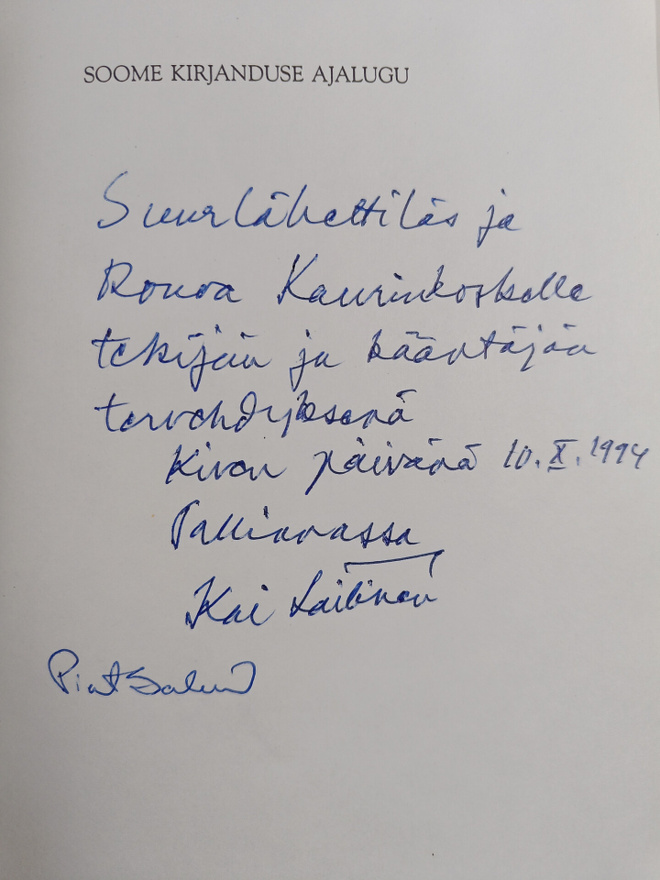 SOOME KIRJANDUSE AJALUGU
Suurlähettiläs ja
Rouva Kaurinkoskelle
tekijän ja kääntäjän
tervehdyksenä
Kiven päivänä 10.X.1994
Tallinnassa
Kai Laitinen
Piret Saluri